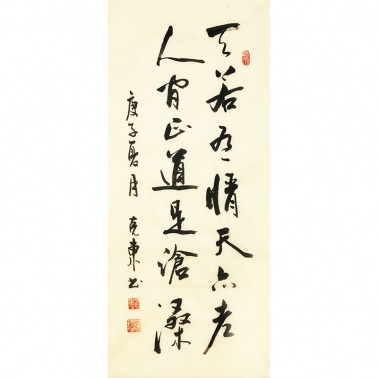 天若有情天亦老
人间正道是滄桑
庚子夏月 克東书